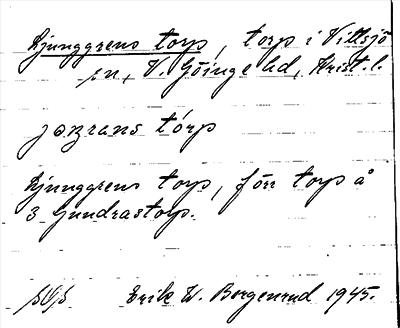 Ljunggrens torp, torp i Vittsjö
sn, V. Göinge hd, Krist. l.
jɷzrans tórp
Ljunggrens torp, förr torp å
3 Gundrastorp.
Erik W. Borgenrud 1945.